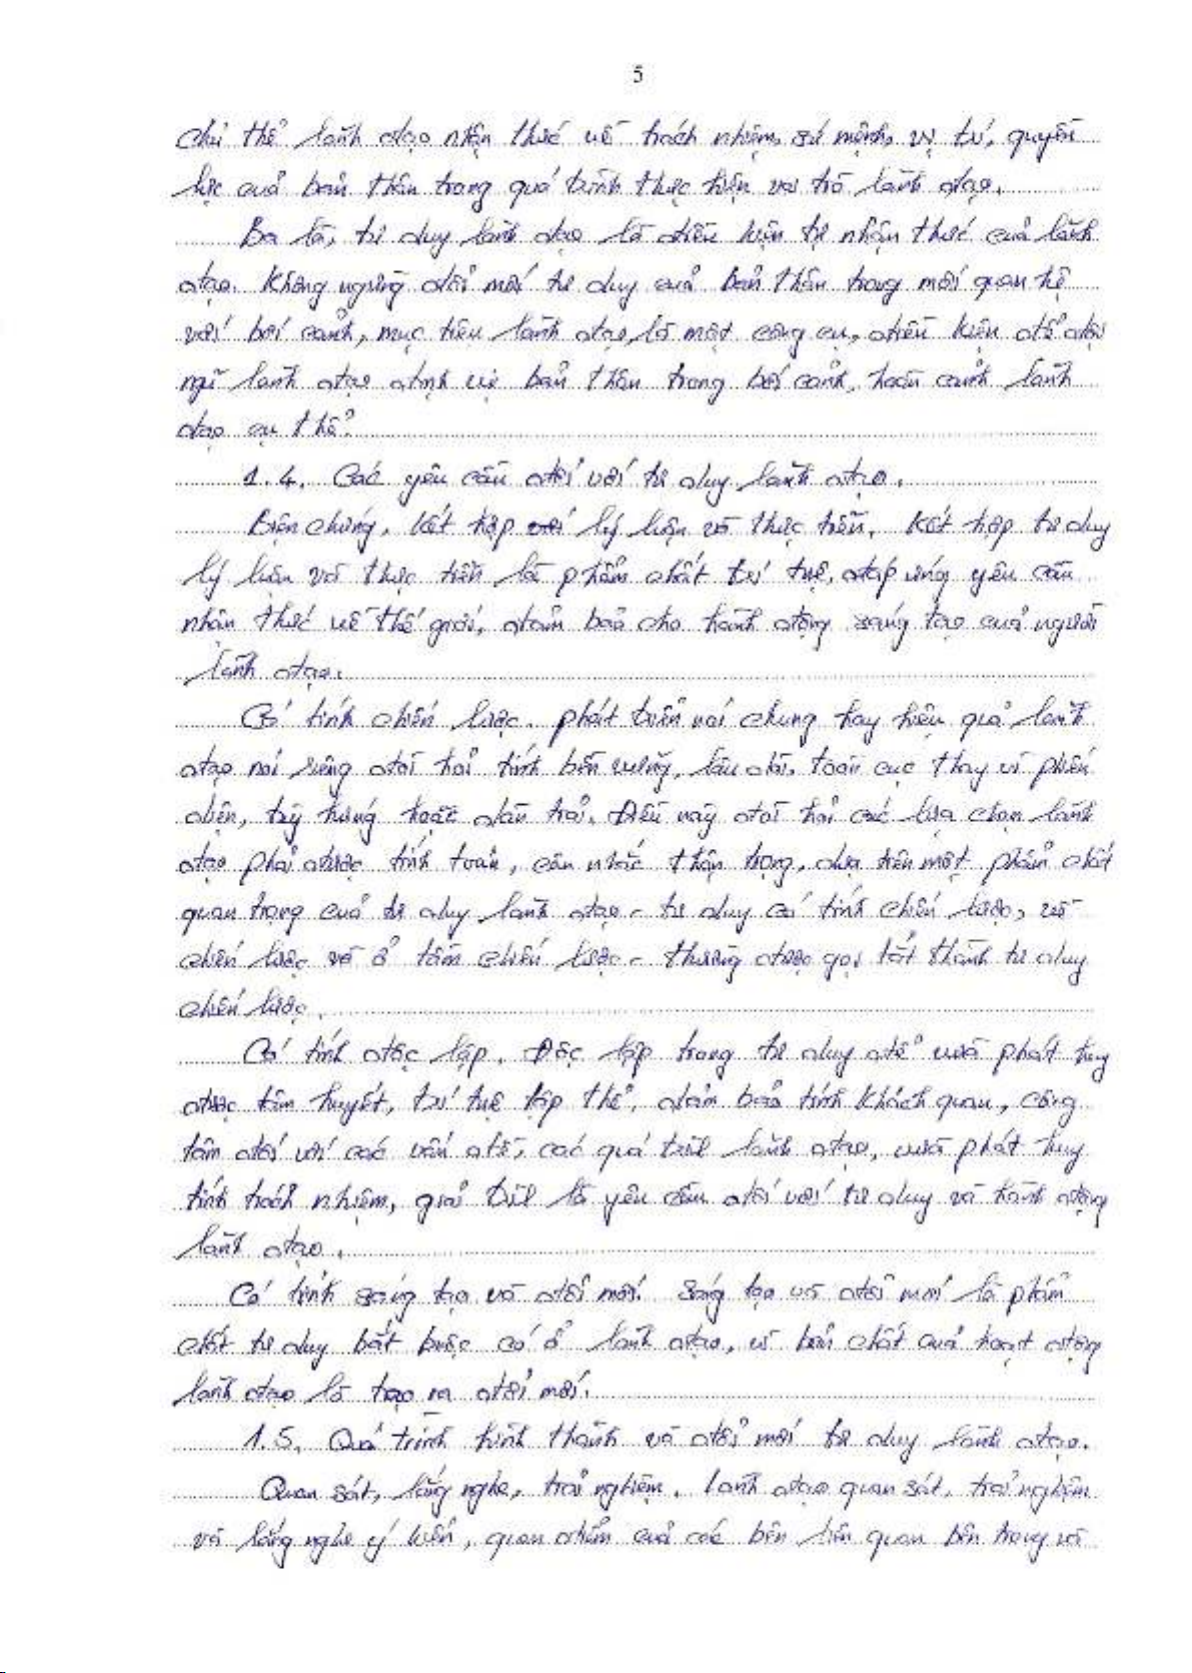 5
chủ thể lãnh đạo nhận thức về trách nhiệm, sứ mệnh, vị trí, quyền
lực của bản thân trong quá trình thực hiện vai trò lãnh đạo.
Ba là, tư duy lãnh đạo là điều kiện tự nhận thức của lãnh
đạo. Không ngừng đổi mới tư duy của bản thân trong mối quan hệ
với bối cảnh, mục tiêu lãnh đạo, là một công cụ, điều kiện để đội
ngũ lãnh đạo định vị bản thân trong bối cảnh, hoàn cảnh lãnh
đạo cụ thể.
1.4. Các yêu cầu đối với tư duy lãnh đạo.
Biện chứng, kết hợp lý luận và thực tiễn. Kết hợp tư duy
lý luận và thực tiễn là phẩm chất trí tuệ, đáp ứng yêu cầu
nhận thức về thế giới, đảm bảo cho hành động sáng tạo của người
lãnh đạo.
Có tính chiến lược. phát triển nói chung hay hiệu quả lãnh
đạo nói riêng đòi hỏi tính bền vững, lâu dài, toàn cục thay vì phiến
diện, tùy hứng hoặc dàn trải. Điều này đòi hỏi các lựa chọn lãnh
đạo phải được tính toán, cân nhắc thận trọng, dựa trên một phẩm chất
quan trọng của tư duy lãnh đạo - tư duy có tính chiến lược, về
chiến lược và ở tầm chiến lược - thường được gọi tắt thành tư duy
chiến lược.
Có tính độc lập. Độc lập trong tư duy để vừa phát huy
được tâm huyết, trí tuệ tập thể, đảm bảo tính khách quan, công
tâm đối với các vấn đề, các quá trình lãnh đạo, vừa phát huy
tính trách nhiệm, giải trình là yêu cầu đối với tư duy và hành động
lãnh đạo.
Có tính sáng tạo và đổi mới. Sáng tạo và đổi mới là phẩm
chất tư duy bắt buộc có ở lãnh đạo, vì bản chất của hoạt động
lãnh đạo là tạo ra đổi mới.
1.5. Quá trình hình thành và đổi mới tư duy lãnh đạo.
Quan sát, lắng nghe, trải nghiệm. Lãnh đạo quan sát, trải nghiệm
và lắng nghe ý kiến, quan điểm của các bên liên quan bên trong và